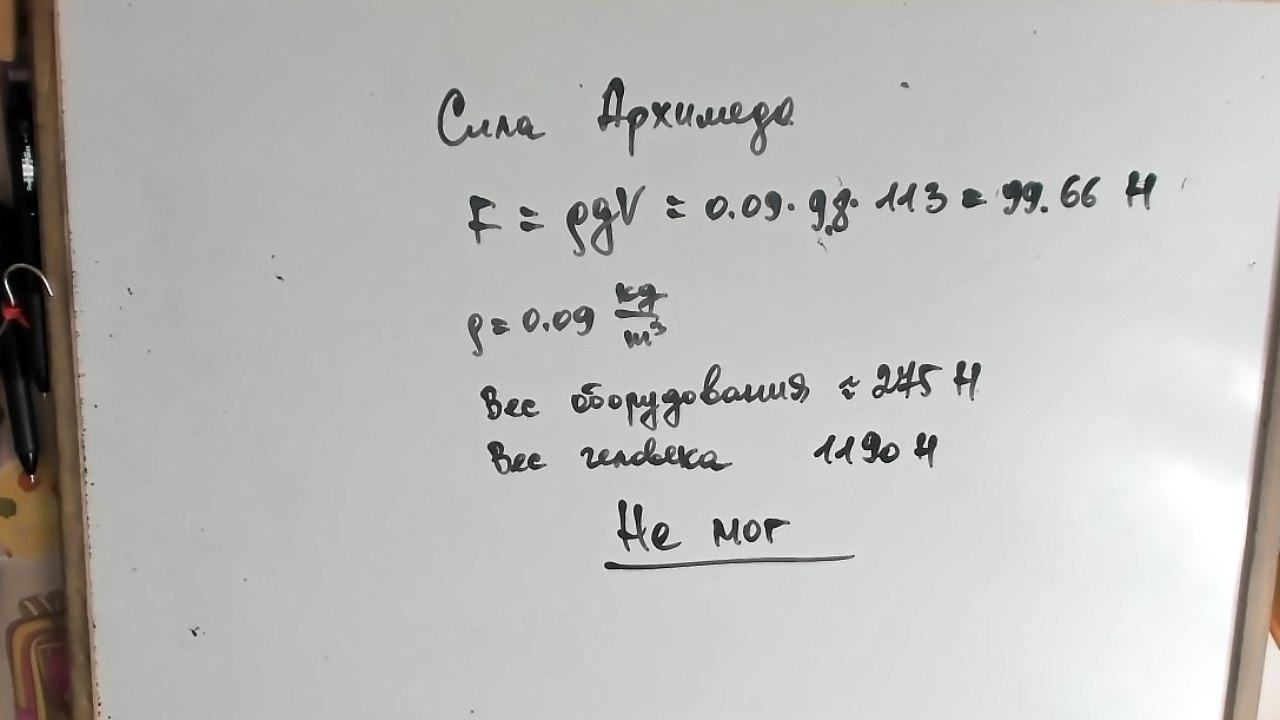 Сила Архимеда
F = ρgV = 0.09 · 9,8 · 113 = 99.66 Н
ρ = 0.09 kg/m³
Вес оборудования ≈ 275 Н
Вес человека 1190 Н
Не мог